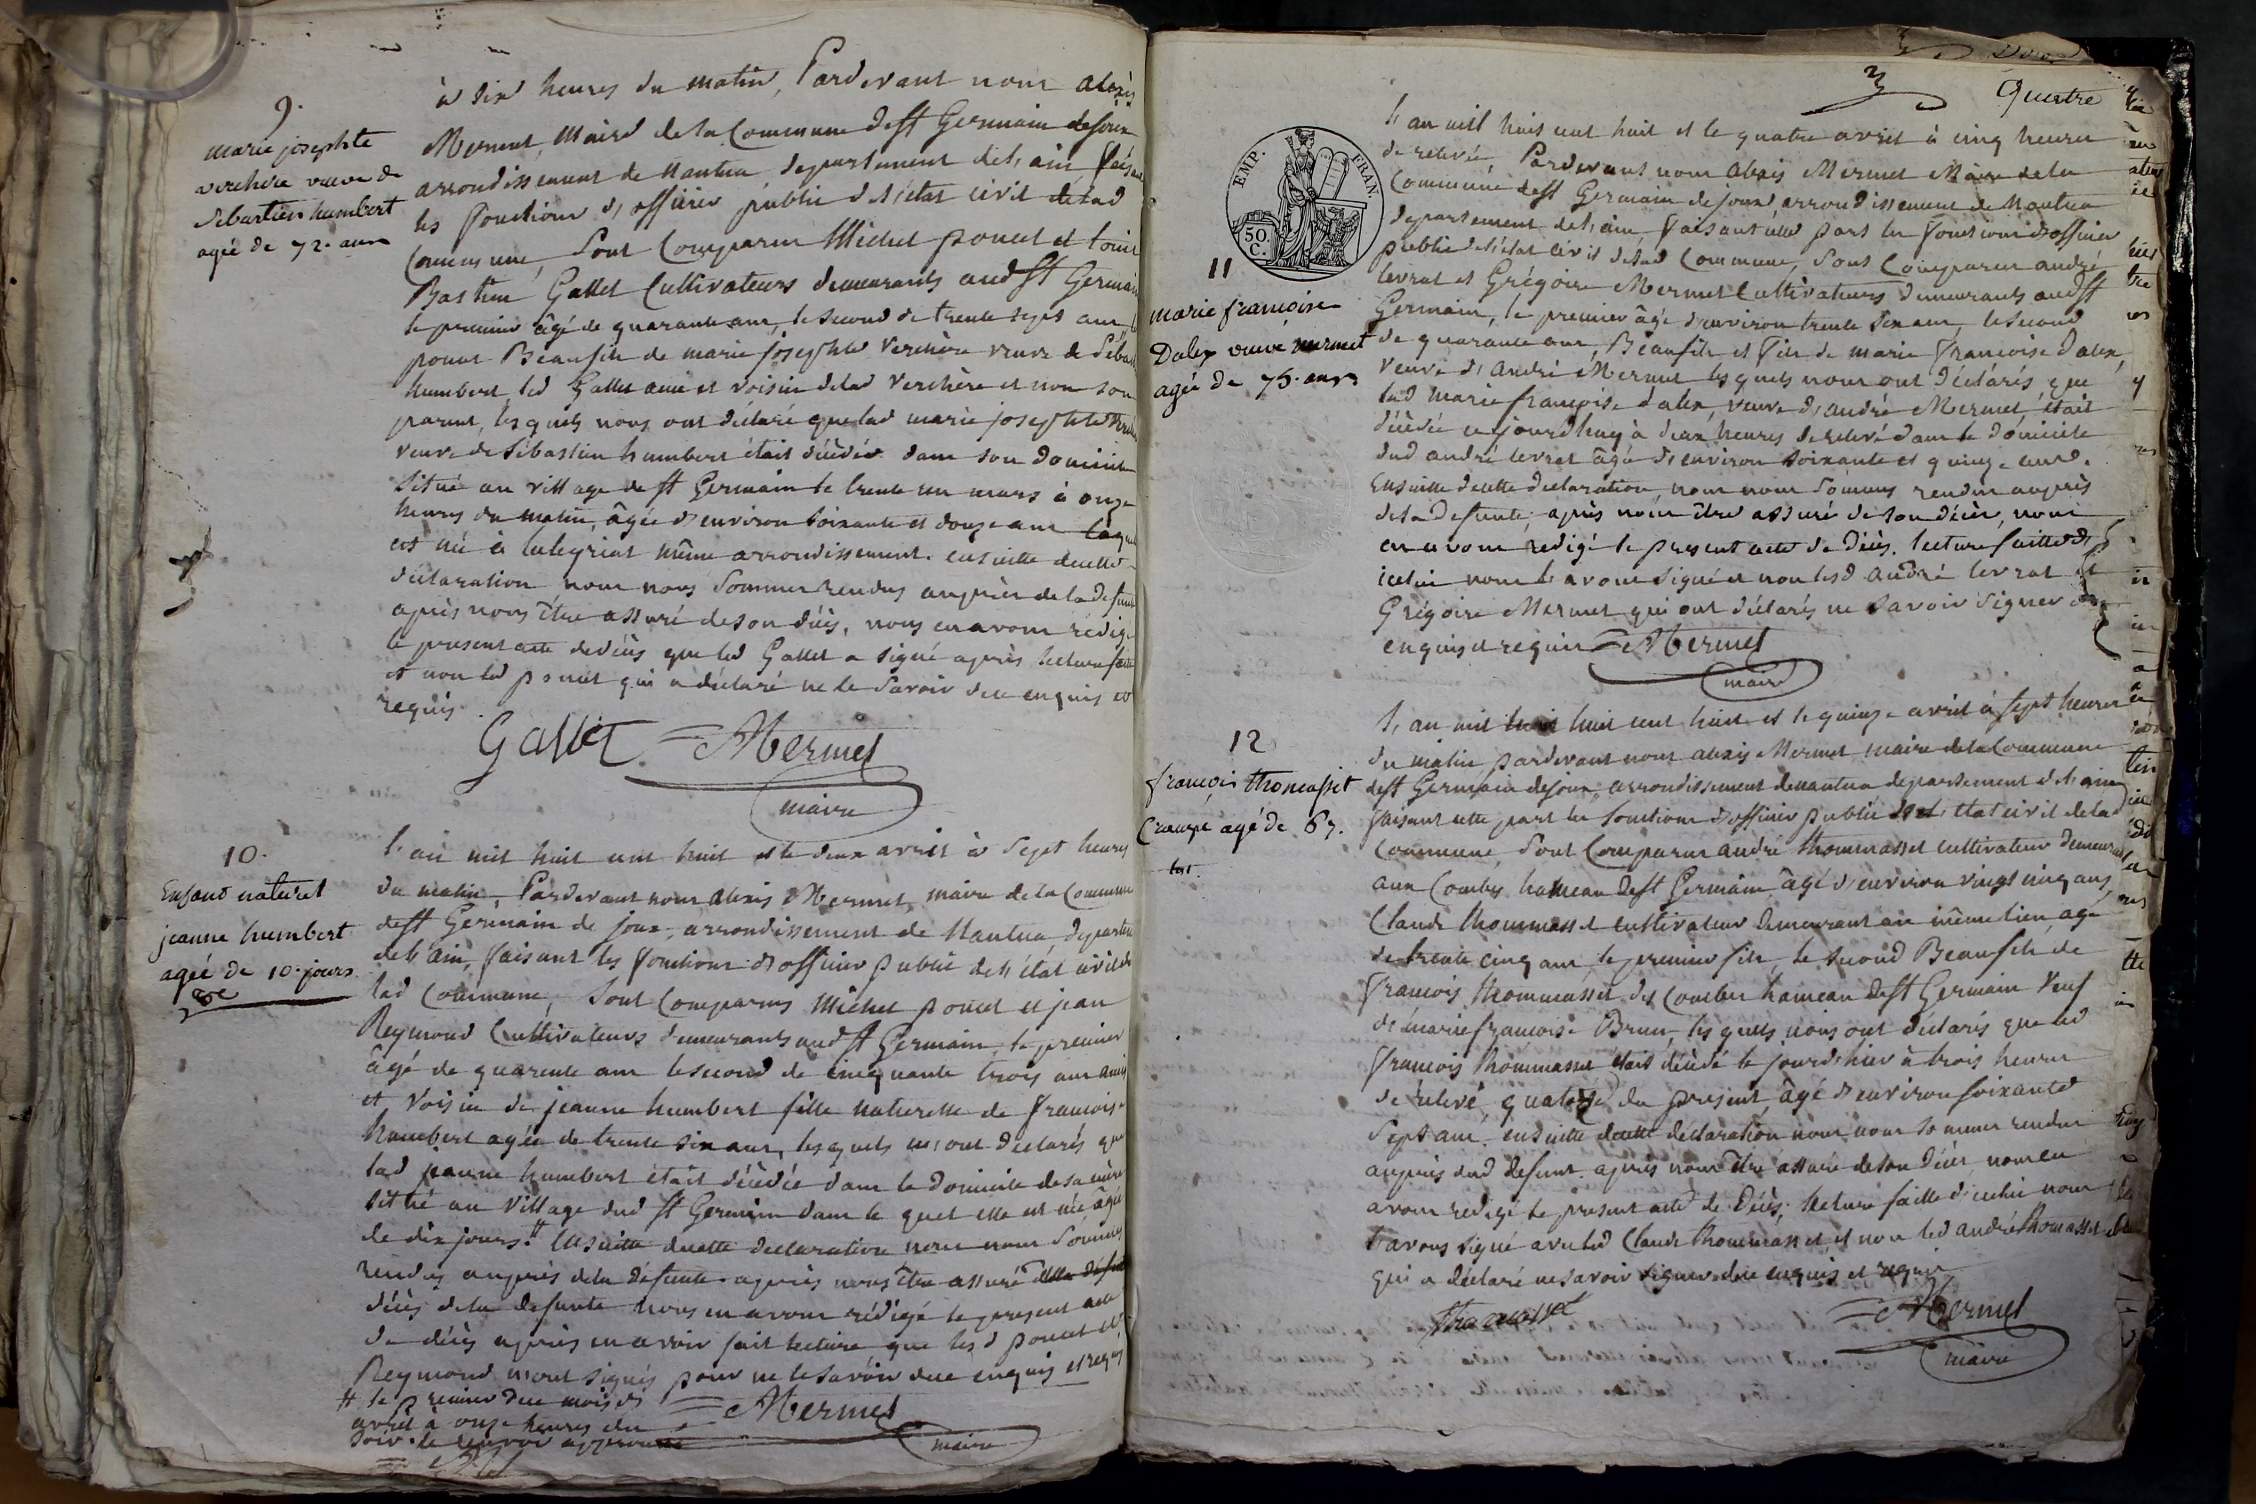 9.
marie josephte
verchere veuve de
Sebastien humbert
agée de 72. ans
à six heures du matin, Pardevant nous alexis
Mermet, Maire de la Commune de St Germain de joux
arrondissement de Nantua, departement de l'ain, faisant
les fonctions d'officier public de l'état civil de lad
Commune, Sont Comparus Michel poncet et
Bastien Gallet Cultivateurs demeurants aud St Germain
le premier âgé de quarante ans, le second de trente sept ans, le
poncet Beaufils de marie Josephte Verchère veuve de Sébast
humbert, led Gallet ami et voisin de lad Verchère et non son
parent, lesquels nous ont déclaré que lad marie josephte
veuve de Sébastien humbert était décédée dans son domicile
Situé au village de St Germain le trente un mars à onze
heures du matin, âgée d'environ soixante et douze ans
est née à lalleyriat même arrondissement. ensuitte de cette
déclaration nous nous Sommes rendus auprès de la defunte
après nous être assuré de son décès, nous en avons rédigé
le present acte de décès que led Gallet a signé après lecture faite
et non led poncet qui a déclaré ne le Savoir de ce enquis et
requis.
Gallet = Mermet
maire
10.
Enfant naturel
jeanne humbert
agée de 10. jours
L'an mil huit cent huit et le deux avril à Sept heures
du matin, Pardevant nous alexis Mermet, maire de la Commune
de St Germain de joux, arrondissement de Nantua, departem
de l'ain, faisant les fonctions d'officier public de l'état civil de
lad Commune, Sont Comparus Michel poncet et jean
Reymond Cultivateurs demeurants aud St Germain, le premier
âgé de quarente ans le second de cinquante trois ans amis
et voisin de jeanne humbert fille naturelle de francoise
humbert agée de trente six ans, lesquels ont declarés que
lad jeanne humbert était décédée dans le domicile de sa mère
sittué au Village dud St Germain dans le quel elle est née âgée
de dix jours. # Ensuitte de cette declaration nous nous Sommes
rendus auprès de la défunte. après nous être assuré
décès de la defunte nous en avons rédigé le present acte
de décès après en avoir fait lecture que lesd poncet et
Reymond n'ont signés pour ne le savoir de ce enquis et requis
# le premier du mois d'
avril à onze heures du
soir. le renvoi approuvé
= Mermet
maire
Quatre
EMP. FRAN.
50 C.
11
marie francoise
Dalex veuve mermet
agée de 75. ans
L'an mil huit cent huit et le quatre avril à cinq heures
de relevée, Pardevant nous alexis Mermet Maire de la
Commune de St Germain de joux arrondissement de Nantua
departement de l'ain faisant cette part les fonctions d'officier
public de l'état civil de lad Commune, Sont Comparus andré
levrat et Grégoire Mermet Cultivateurs demeurants aud St
Germain, le premier âgé d'environ trente six ans, le second
de quarante ans, Beaufils et fils de marie francoise dalex,
veuve d'andré Mermet lesquels nous ont déclarés que
lad Marie francoise dalex, veuve d'andré Mermet, était
décédée ce jourd'huy à deux heures de relevé dans le domicile
dud andré levrat âgée d'environ soixante et quinze ans.
Ensuitte de cette declaration, nous nous Sommes rendus auprès
de la defunte, après nous être assuré de son décès, nous
en avons redigé le present acte de Décès. lecture faitte d'
icelui nous l'avons signé et non lesd andré levrat et
Grégoire Mermet qui ont déclarés ne savoir signer de ce
enquis et requis = Mermet
maire
12
francois thomasset
agé de 67.
L'an mil huit cent huit et le quinze avril à sept heures
du matin pardevant nous alexis Mermet maire de la Commune
de St Germain de joux, arrondissement de nantua departement de l'ain
faisant cette part les fonctions d'officier public de l'état civil de lad
Commune, Sont Comparus andré thommasset cultivateur demeurant
aux Combes hameau de St Germain âgé d'environ vingt cinq ans,
Claude thommasset cultivateur demeurant au même lieu, agé
de trente cinq ans, le premier fils, le second Beaufils de
francois thommasset des Combes hameau de St Germain Veuf
de marie francoise Brun, lesquels nous ont déclarés que led
francois thommasset était décédé le jourd'hier à trois heures
de relevé, quatorze du present, âgé d'environ soixante
sept ans. ensuitte de cette déclaration nous nous sommes rendus
auprès dud defunt. après nous être assuré de son Décès, nous en
avons redigé le present acte de Décès, lecture faitte d'icelui nous
l'avons signé avec led Claude thommasset et non led andré thomasset
qui a déclaré ne savoir signer de ce enquis et requis
thomasset = Mermet
maire